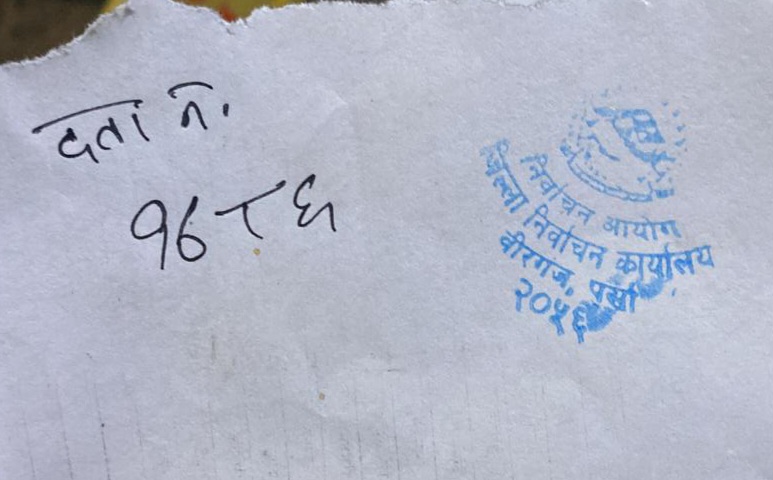 दर्ता नं.
१७८६
निर्वाचन आयोग
जिल्ला निर्वाचन कार्यालय
वीरगंज, पर्सा